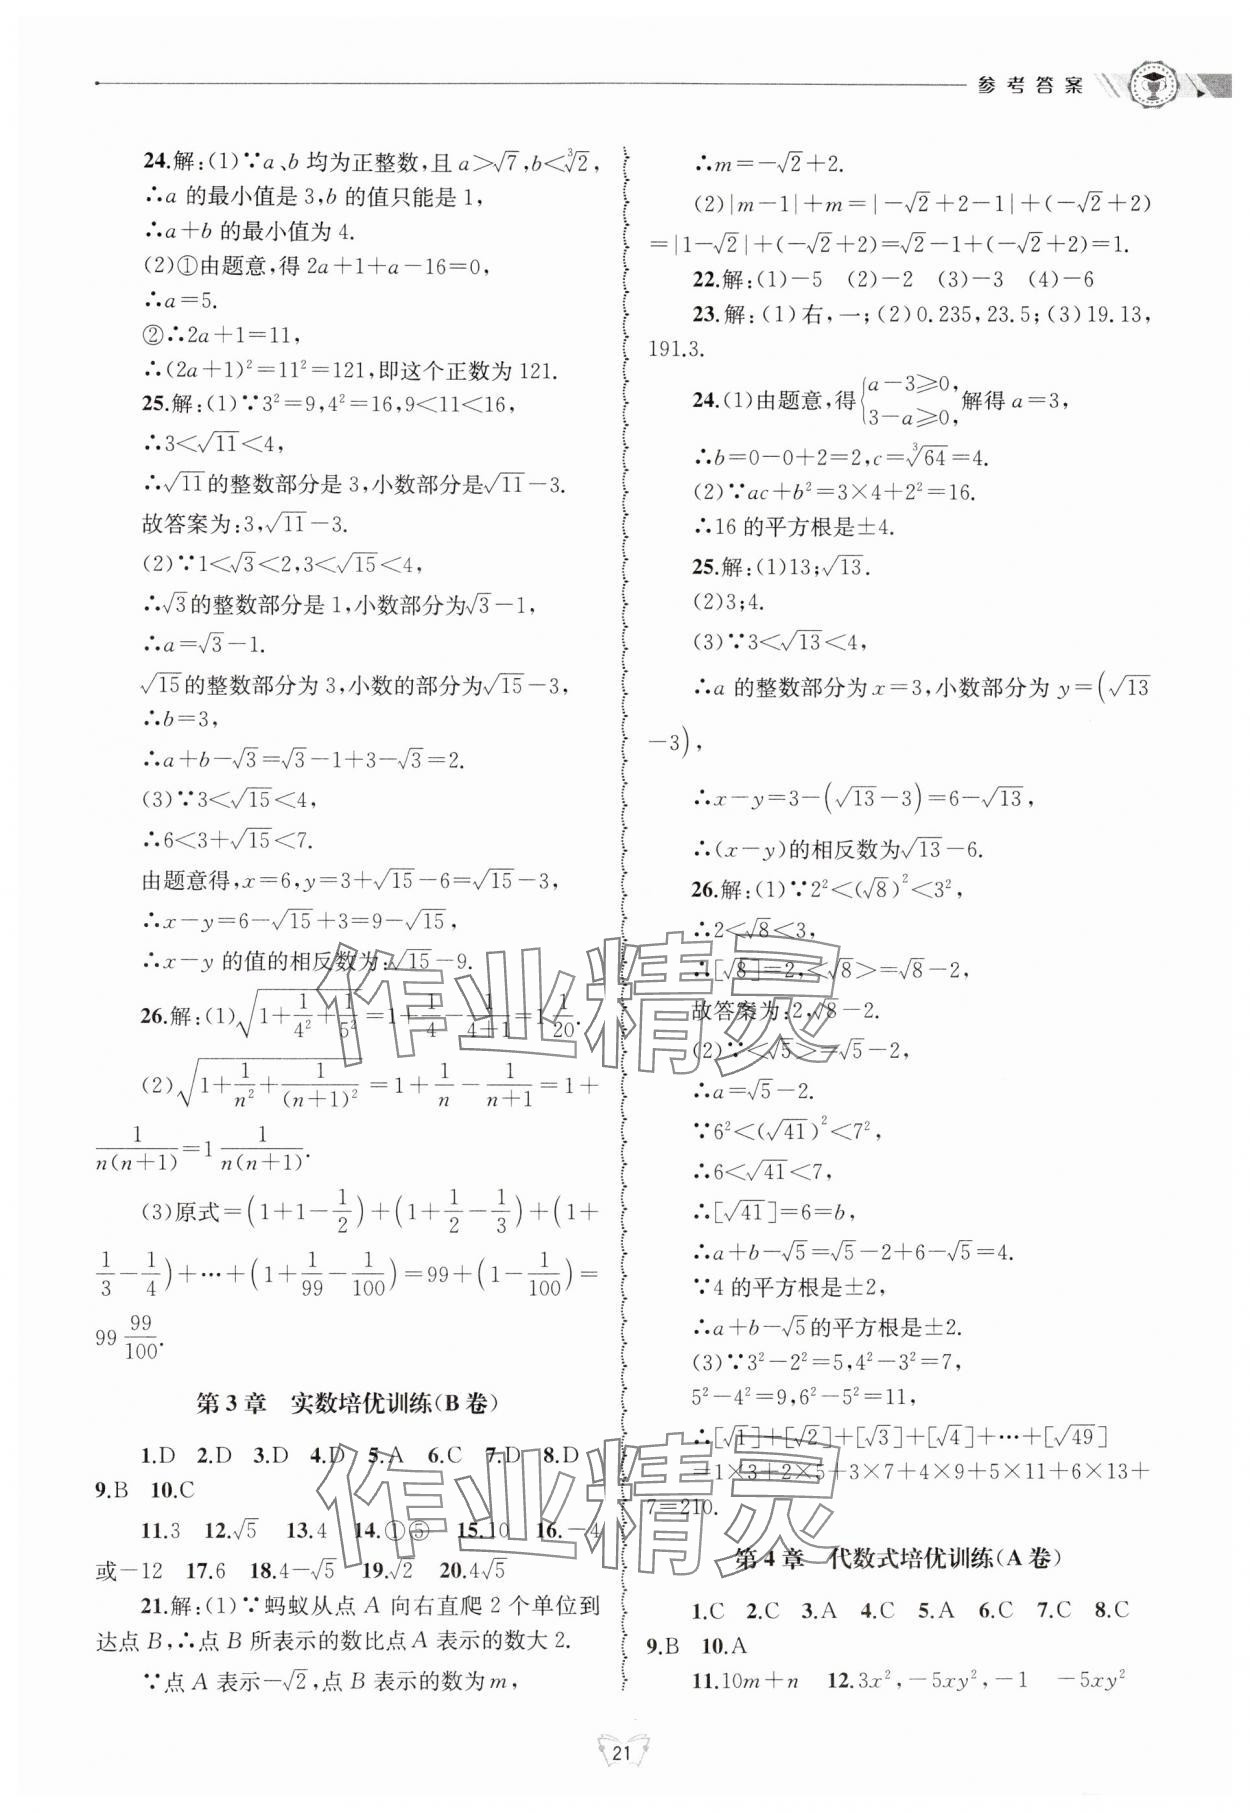 参考答案
24.解:(1)∵a、b 均为正整数,且 a>√7,b<∛2,
∴a 的最小值是 3,b 的值只能是 1,
∴a+b 的最小值为 4.
(2)①由题意,得 2a+1+a-16=0,
∴a=5.
②∴2a+1=11,
∴(2a+1)²=11²=121,即这个正数为 121.
25.解:(1)∵3²=9,4²=16,9<11<16,
∴3<√11<4,
∴√11的整数部分是 3,小数部分是√11-3.
故答案为:3,√11-3.
(2)∵1<√3<2,3<√15<4,
∴√3的整数部分是 1,小数部分为√3-1,
∴a=√3-1.
√15的整数部分为 3,小数的部分为√15-3,
∴b=3,
∴a+b-√3=√3-1+3-√3=2.
(3)∵3<√15<4,
∴6<3+√15<7.
由题意得,x=6,y=3+√15-6=√15-3,
∴x-y=6-√15+3=9-√15,
∴x-y 的值的相反数为:√15-9.
26.解:(1)√(1+1/4²+1/5²)=1+1/4-1/(4+1)=1 1/20.
(2)√(1+1/n²+1/(n+1)²)=1+1/n-1/(n+1)=1+
1/(n(n+1))=1 1/(n(n+1)).
(3)原式=(1+1-1/2)+(1+1/2-1/3)+(1+
1/3-1/4)+…+(1+1/99-1/100)=99+(1-1/100)=
99 99/100.
第 3 章 实数培优训练(B 卷)
1.D 2.D 3.D 4.D 5.A 6.C 7.D 8.D
9.B 10.C
11.3 12.√5 13.4 14.①⑤ 15.10 16.-4
或-12 17.6 18.4-√5 19.√2 20.4√5
21.解:(1)∵蚂蚁从点 A 向右直爬 2 个单位到
达点 B,∴点 B 所表示的数比点 A 表示的数大 2.
∵点 A 表示-√2,点 B 表示的数为 m,
∴m=-√2+2.
(2)|m-1|+m=|-√2+2-1|+(-√2+2)
=|1-√2|+(-√2+2)=√2-1+(-√2+2)=1.
22.解:(1)-5 (2)-2 (3)-3 (4)-6
23.解:(1)右,一;(2)0.235,23.5;(3)19.13,
191.3.
24.(1)由题意,得{a-3≥0, 3-a≥0, 解得 a=3,
∴b=0-0+2=2,c=∛64=4.
(2)∵ac+b²=3×4+2²=16.
∴16 的平方根是±4.
25.解:(1)13;√13.
(2)3;4.
(3)∵3<√13<4,
∴a 的整数部分为 x=3,小数部分为 y=(√13
-3),
∴x-y=3-(√13-3)=6-√13,
∴(x-y)的相反数为√13-6.
26.解:(1)∵2²<(√8)²<3²,
∴2<√8<3,
∴[√8]=2,<√8>=√8-2,
故答案为:2,√8-2.
(2)∵<√5>=√5-2,
∴a=√5-2.
∵6²<(√41)²<7²,
∴6<√41<7,
∴[√41]=6=b,
∴a+b-√5=√5-2+6-√5=4.
∵4 的平方根是±2,
∴a+b-√5的平方根是±2.
(3)∵3²-2²=5,4²-3²=7,
5²-4²=9,6²-5²=11,
∴[√1]+[√2]+[√3]+[√4]+…+[√49]
=1×3+2×5+3×7+4×9+5×11+6×13+
7=210.
第 4 章 代数式培优训练(A 卷)
1.C 2.C 3.A 4.C 5.A 6.C 7.C 8.C
9.B 10.A
11.10m+n 12.3x²,-5xy²,-1 -5xy²
作业精灵
作业精灵
21